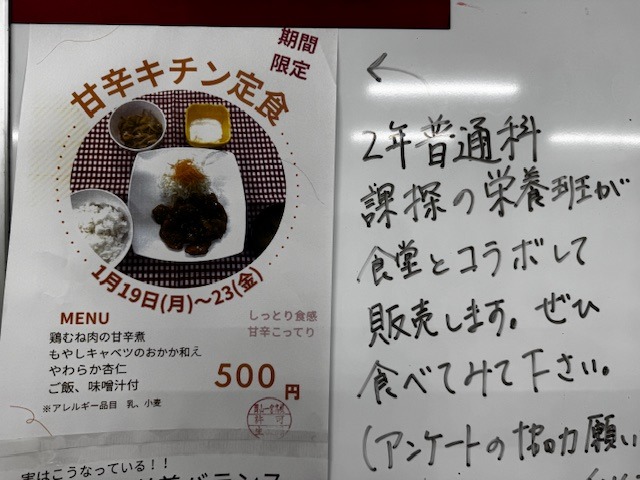 期間
限定
甘辛キチン定食
1月19日(月)～23(金)
MENU
しっとり食感
甘辛こってり
鶏むね肉の甘辛煮
もやしキャベツのおかか和え
やわらか杏仁
ご飯、味噌汁付
500円
※アレルギー品目 乳、小麦
許可
実はこうなっている！！
バランス
←
2年普通科
課探の栄養班が
食堂とコラボして
販売します。ぜひ
食べてみて下さい。
(アンケートの協力願い